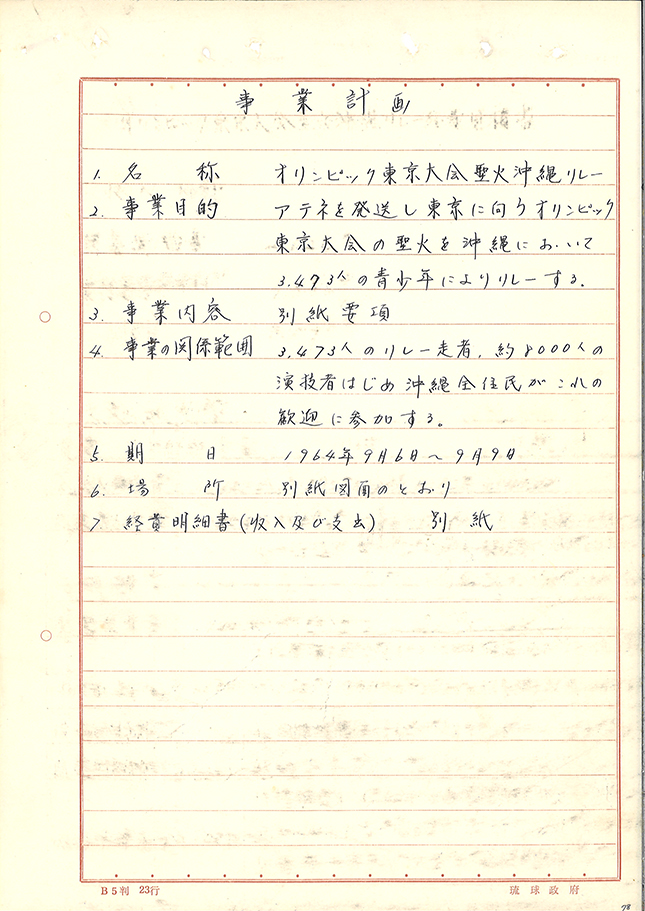 事業計画
1. 名称 オリンピック東京大会聖火沖縄リレー
2. 事業目的 アテネを発送し東京に向うオリンピック
東京大会の聖火を沖縄において
3.473人の青少年によりリレーする.
3. 事業内容 別紙要項
4. 事業の関係範囲 3.473人のリレー走者, 約8000人の
演技者はじめ沖縄全住民がこれの
歓迎に参加する。
5. 期日 1964年9月6日～9月9日
6. 場所 別紙図面のとおり
7 経費明細書(収入及び支出) 別紙
B5判 23行 琉球政府
78